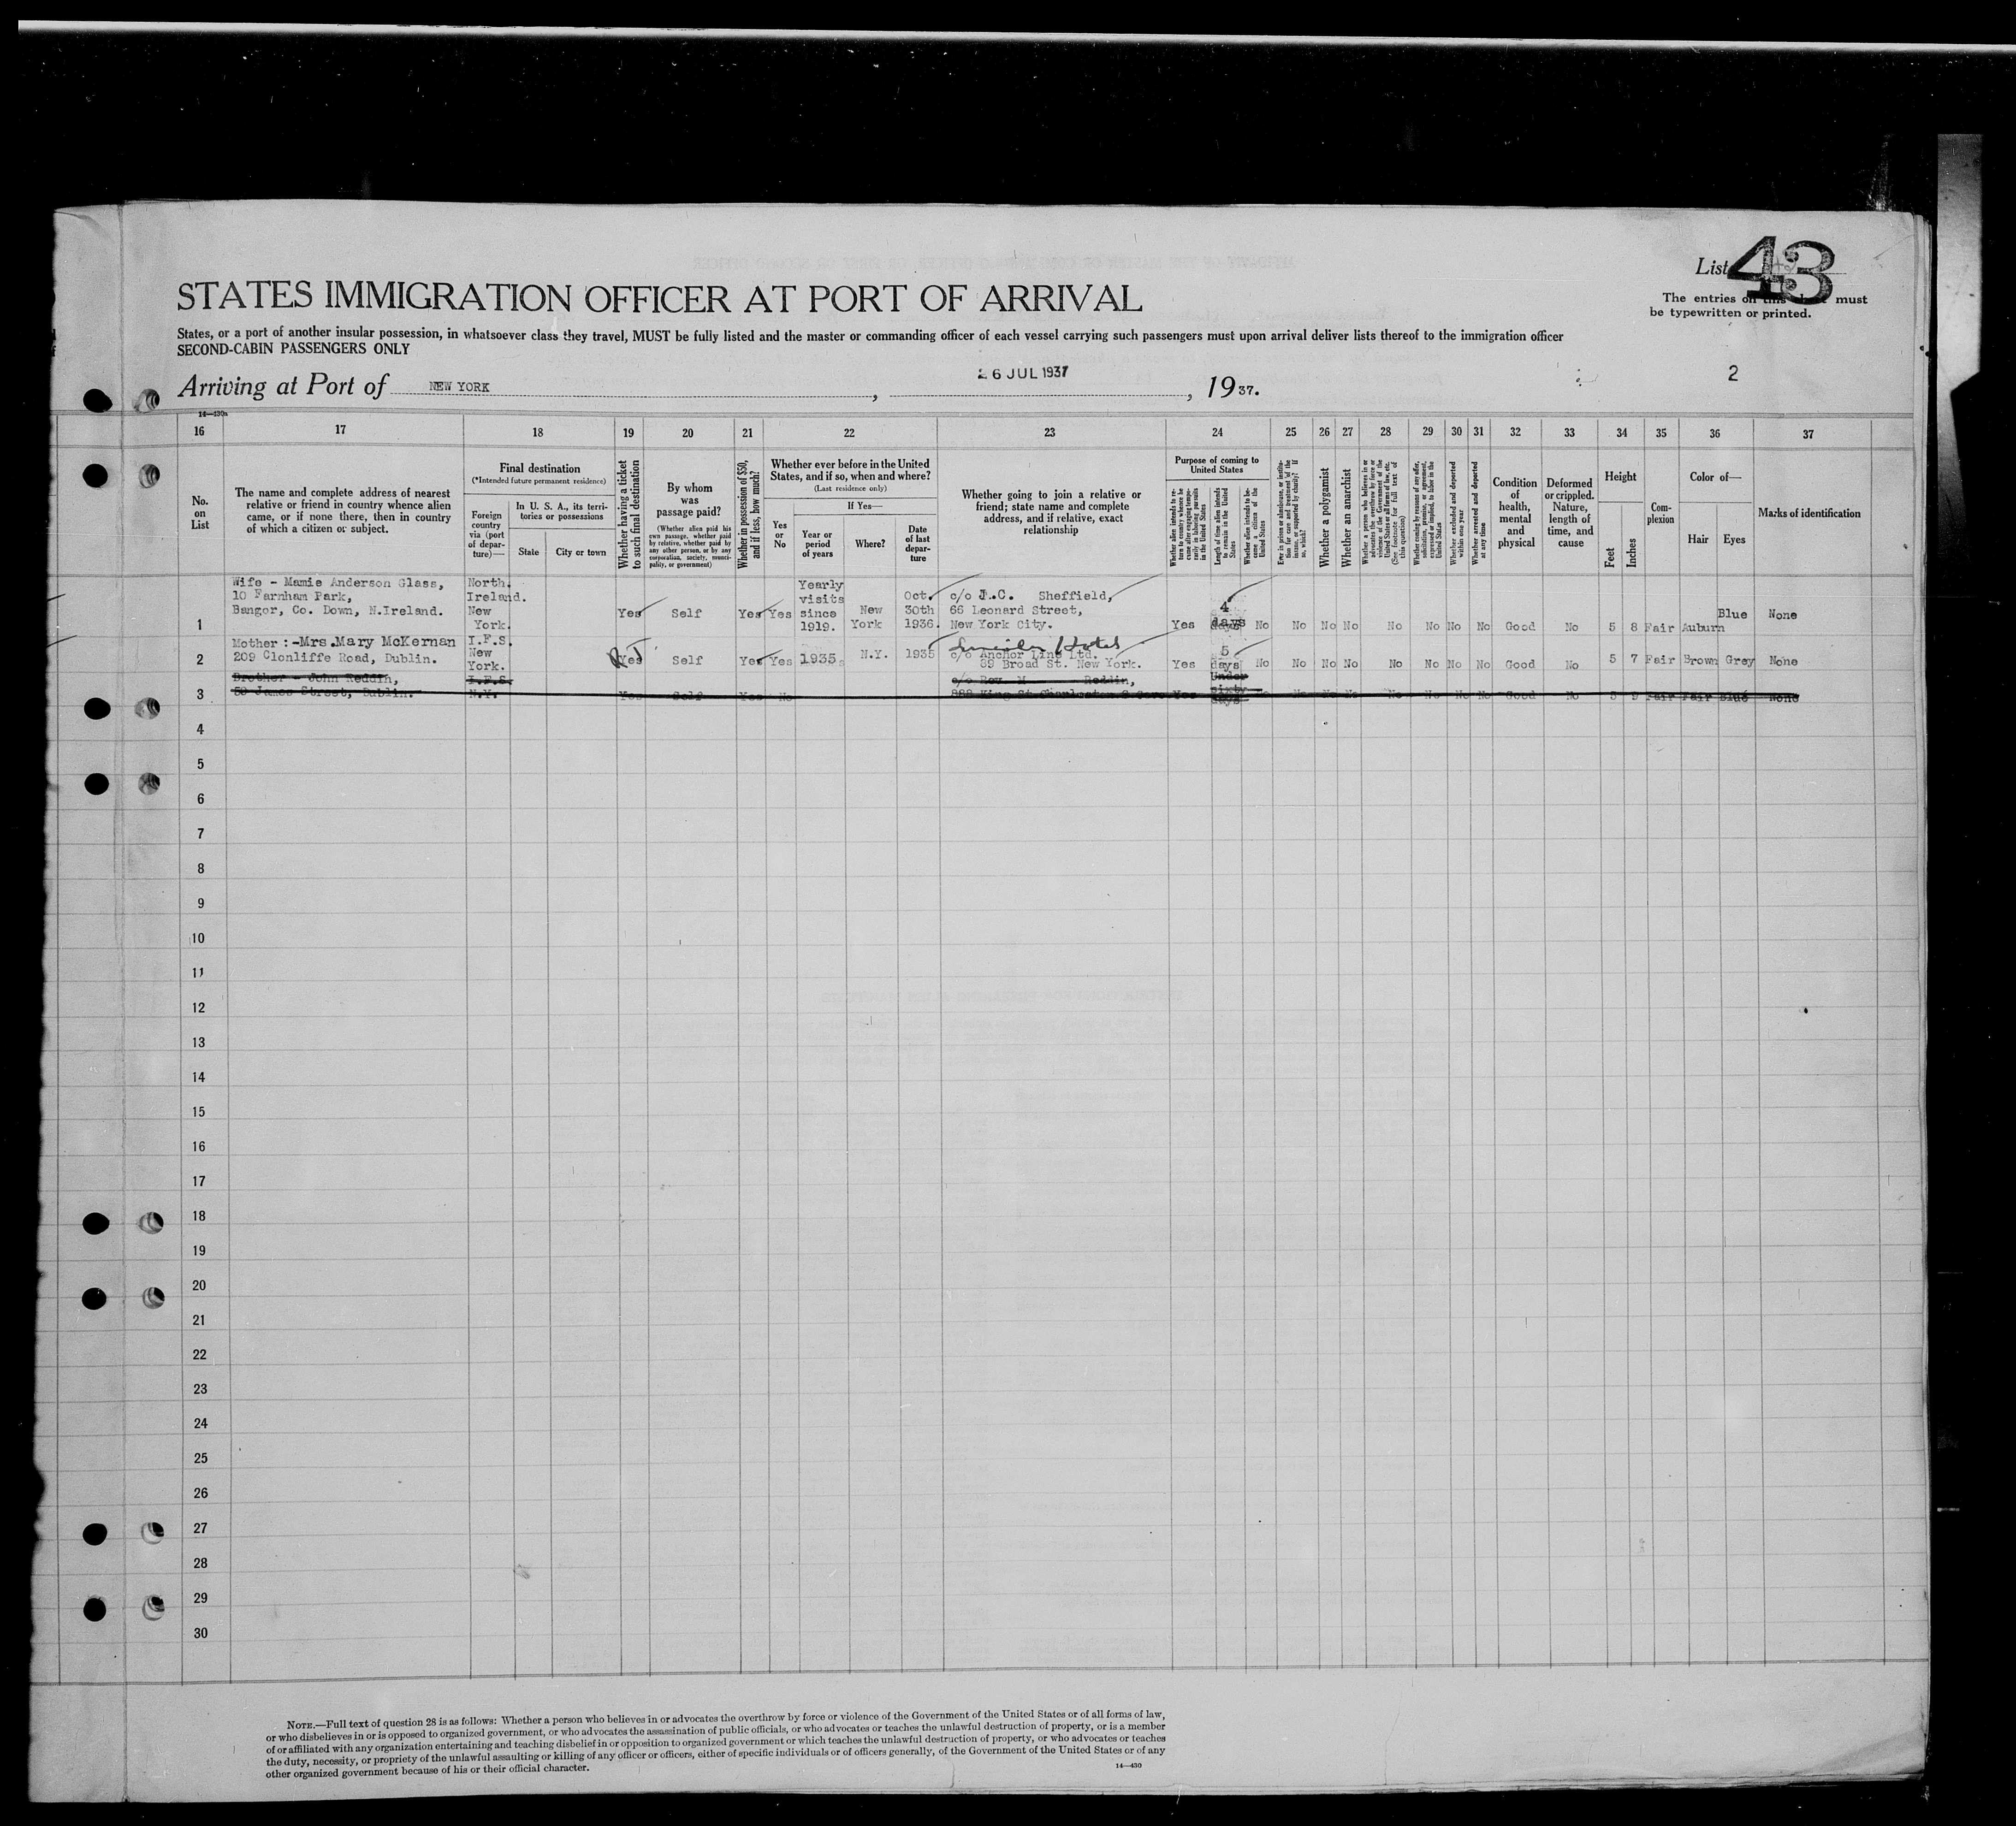 List 43
The entries on this sheet must
be typewritten or printed.
STATES IMMIGRATION OFFICER AT PORT OF ARRIVAL
States, or a port of another insular possession, in whatsoever class they travel, MUST be fully listed and the master or commanding officer of each vessel carrying such passengers must upon arrival deliver lists thereof to the immigration officer
SECOND-CABIN PASSENGERS ONLY
Arriving at Port of NEW YORK, 26 JUL 1937, 1937.
2
14—430a
16 17 18 19 20 21 22 23 24 25 26 27 28 29 30 31 32 33 34 35 36 37
No. on List
The name and complete address of nearest relative or friend in country whence alien came, or if none there, then in country of which a citizen or subject.
Final destination
(*Intended future permanent residence)
Foreign country via (port of departure)—
In U. S. A., its territories or possessions
State
City or town
Whether having a ticket to such final destination
By whom was passage paid?
(Whether alien paid his own passage, whether paid by relative, whether paid by any other person, or by any corporation, society, municipality, or government)
Whether in possession of $50, and if less, how much?
Whether ever before in the United States, and if so, when and where?
(Last residence only)
Yes or No
If Yes—
Year or period of years
Where?
Date of last departure
Whether going to join a relative or friend; state name and complete address, and if relative, exact relationship
Purpose of coming to United States
Whether alien intends to return to country whence he came after engaging temporarily in laboring pursuits in the United States
Length of time alien intends to remain in the United States
Whether alien intends to become a citizen of the United States
Ever in prison or almshouse, or institution for care and treatment of the insane, or supported by charity? If so, which?
Whether a polygamist
Whether an anarchist
Whether a person who believes in or advocates the overthrow by force or violence of the Government of the United States or all forms of law, etc. (See footnote for full text of this question)
Whether coming by reason of any offer, solicitation, promise, or agreement, expressed or implied, to labor in the United States
Whether excluded and deported within one year
Whether arrested and deported at any time
Condition of health, mental and physical
Deformed or crippled. Nature, length of time, and cause
Height
Feet
Inches
Complexion
Color of—
Hair
Eyes
Marks of identification
1 Wife - Mamie Anderson Glass,
10 Farnham Park,
Bangor, Co. Down, N.Ireland.
North. Ireland. New York.
Yes Self Yes Yes
Yearly visits since 1919.
New York
Oct. 30th 1936.
c/o J.C. Sheffield,
66 Leonard Street,
New York City.
Yes 4 days No No No No No No No No Good No 5 8 Fair Auburn Blue None
2 Mother :-Mrs.Mary McKernan
209 Clonliffe Road, Dublin.
I.F.S. New York.
RT
Yes Self Yes Yes 1935 N.Y. 1935
Lincoln Hotel
c/o Anchor Line Ltd.
89 Broad St. New York.
Yes 5 days No No No No No No No No Good No 5 7 Fair Brown Grey None
3 Brother - John Reddin,
58 James Street, Dublin.
I.F.S.
N.Y.
Yes Self Yes No
c/o Rev. M Reddin,
888 King St.Charleston S
Yes Under sixty days No No No No No No No No Good No 5 9 Fair Fair Blue None
4
5
6
7
8
9
10
11
12
13
14
15
16
17
18
19
20
21
22
23
24
25
26
27
28
29
30
NOTE.—Full text of question 28 is as follows: Whether a person who believes in or advocates the overthrow by force or violence of the Government of the United States or of all forms of law,
or who disbelieves in or is opposed to organized government, or who advocates the assassination of public officials, or who advocates or teaches the unlawful destruction of property, or is a member
of or affiliated with any organization entertaining and teaching disbelief in or opposition to organized government or which teaches the unlawful destruction of property, or who advocates or teaches
the duty, necessity, or propriety of the unlawful assaulting or killing of any officer or officers, either of specific individuals or of officers generally, of the Government of the United States or of any
other organized government because of his or their official character.
14—430